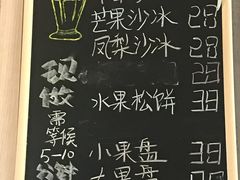 芒果沙冰 28
凤梨沙冰 28
28
水果松饼 38
小果盘 38
大果盘
现做需等候5-10分钟